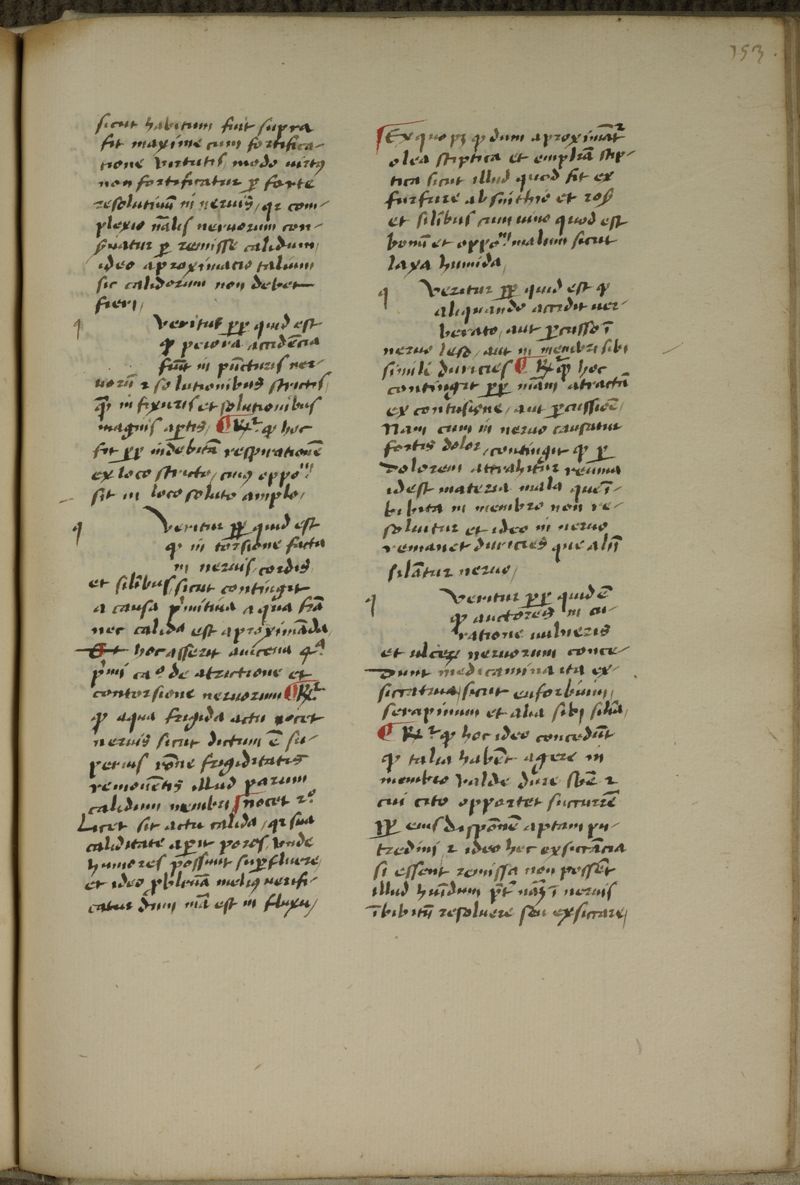 153
sicut habitum fuit supra
fit maxime cum fortifica-
tione virtutis, modo virtꝰ
non fortificatur ꝑ forte
resolutiuū in neruis, qr com-
plexio nālis neruorum con-
ꝑuatur ꝑ remisse calidum,
ideo aproximacio talium
sic calidorum non debet
fieri,
q Veritur ꝓꝑ quid est
ꝙ peiora accidēcia
fiūt in pūcturis ner-
uorū ⁊ solutionibus strictis,
ꝙ in fixuris et solutionibus
magnis aꝑtis, ¶ Rꝛ ꝙ hoc
fit ꝓꝑ indebitā respirationē
ex loco stricto, cuiꝰ oppoᵐ
fit in loco soluto amplo,
q Veritur ꝓꝑ quid est
ꝙ in torsione facta
in neruis, cordis
et silibus, sicut contingit
a causa p̄mitiua aqua frā
nec calida est aproximāda,
hoc asserit auicena qᵃ
p̄mi caº de atrictione et
contorsione neruorum ¶ Rꝛ
ꝙ aqua frigida actu nocet
neruis sicut dictum ē su-
perius rōne frigiditatis
remouētis illud parum
calidum membri, nocet ⁊º
Licet sit actu calida, qr sua
caliditate aꝑit poros, vnde
humores possunt suꝑfluere,
et ideo ꝓbleuā meliꝰ verifi-
catur dum mā est in fluxu,
Ex quo pꝫ ꝙ dum aproximātꝛ
olea stiptica et emplrā stip-
tica sicut illud quod fit ex
furfure absinthio et rosꝭ
et silibus cum uino quod est
bonū et oppoᵐ malum sicut
laxa humida,
q Veritur ꝓꝑ quid est ꝙ
aliquando accidit ver-
berato, aut ꝑcusso ī
neruo leso, aut in membri sibi
simili duricies ¶ Rꝛ ꝙ hoc
contingit ꝓꝑ mām atractā
ex contusione, aut ꝑcussiōe,
Nam cum in neruo causatur
fortis dolor, contingit ꝙ ꝑ
dolorem attrahitur reuma
idest materia mala que ī-
bibita in membro non re-
soluitur et ideo in neruo
remanet duricies que aliī
silātur neruo,
q Veritur ꝓꝑ quid ē
ꝙ auctores in cu-
ratione vulneris
et ulceꝝ neruorum conce-
dunt medicamina ita ex-
siccatiua, sicut euforbium,
serapinum et alia sibi silia,
¶ Rꝛ ꝙ hoc ideo concedūt
ꝙ talia habēt agere in
membro valde dure sbē ⁊
cui cito opportet succurrē
ꝓꝑ eius dispōnē aptam pu-
tredini ⁊ ideo hec exsiccācia
si essent remissa non possēt
illud hūidum p̄t nāꝫ ī neruis
ībibitū resoluere seu exsiccare,